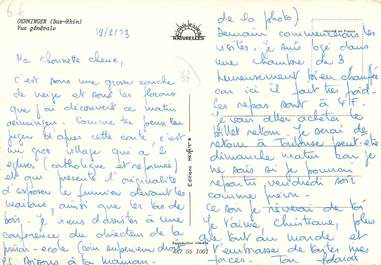 OERMINGEN (Bas-Rhin)
Vue générale
19/2/73
NATURELLES
Ma chounette chérie,
C'est sous une grosse couche
de neige et sous les flocons
que j'ai découvert ce matin
Oermingen. Comme tu peux le
juger d'après cette carte, c'est
un gros village qui a 2
églises (catholique et réformée)
et qui présente l'originalité
d'exposer le fumier devant les
maisons ainsi que les tas de
bois. Je nous d'assister à une
conférence du directeur de la
prison-école (coin supérieur droit
P.S. Bisous à ta maman.
de la photo)
Demain commencerons les
visites. Je suis logé dans
une chambre de 3
heureusement bien chauffée
car ici il fait très froid.
Les repas sont à 4F.
Je vais aller acheter le
billet retour. Je serai de
retour à Toulouse peut-être
dimanche matin car je
ne sais si je pourrai
repartir vendredi soir
comme prévu.
Ce soir je rêverai de toi
Je t'aime Christiane, plus
que tout au monde et
t'embrasse de toutes mes
forces. Ton
Reproduction interdite
667 05 1001